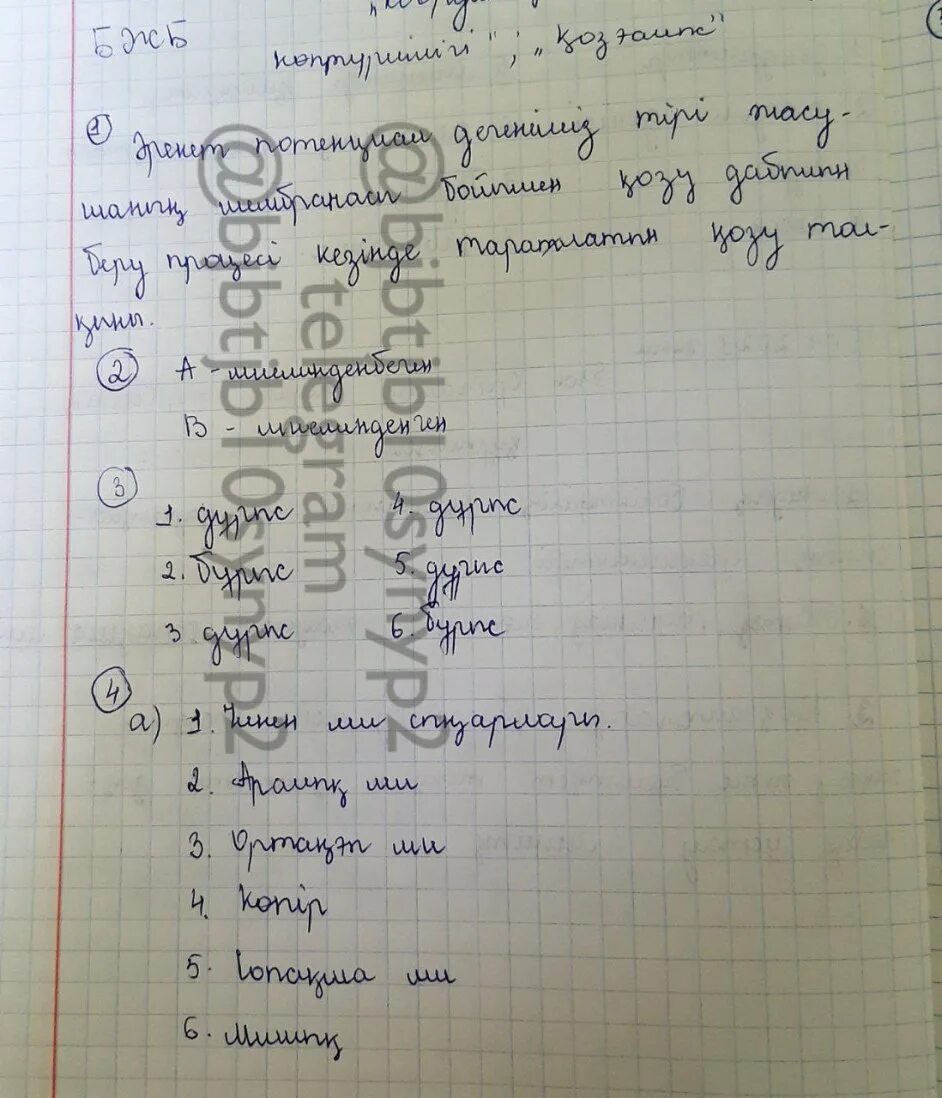 БЖБ
көптүрлілігі"; „Қозғалыс"
1 Әрекет потенциал дегеніміз тірі жасу-
шаның мембранасы бойымен қозу дабылын
беру процесі кезінде таратылатын қозу тол-
қыны.
2 А - миелинденбеген
В - миелинденген
3
1. дұрыс 4. дұрыс
2. бұрыс 5. дұрыс
3. дұрыс 6. бұрыс
4
а) 1. Үлкен ми сыңарлары.
2. Аралық ми
3. Ортаңғы ми
4. Көпір
5. Сопақша ми
6. Мишық
@bjbtjb10synyp2
telegram
@bjbtjb10synyp2